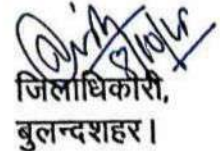 जिलाधिकारी,
बुलन्दशहर।